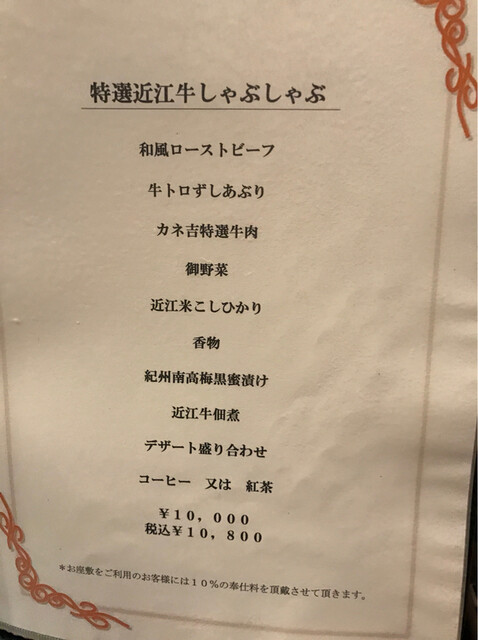 特選近江牛しゃぶしゃぶ
和風ローストビーフ
牛トロずしあぶり
カネ吉特選牛肉
御野菜
近江米こしひかり
香物
紀州南高梅黒蜜漬け
近江牛佃煮
デザート盛り合わせ
コーヒー　又は　紅茶
￥１０，０００
税込￥１０，８００
＊お座敷をご利用のお客様には１０％の奉仕料を頂戴させて頂きます。